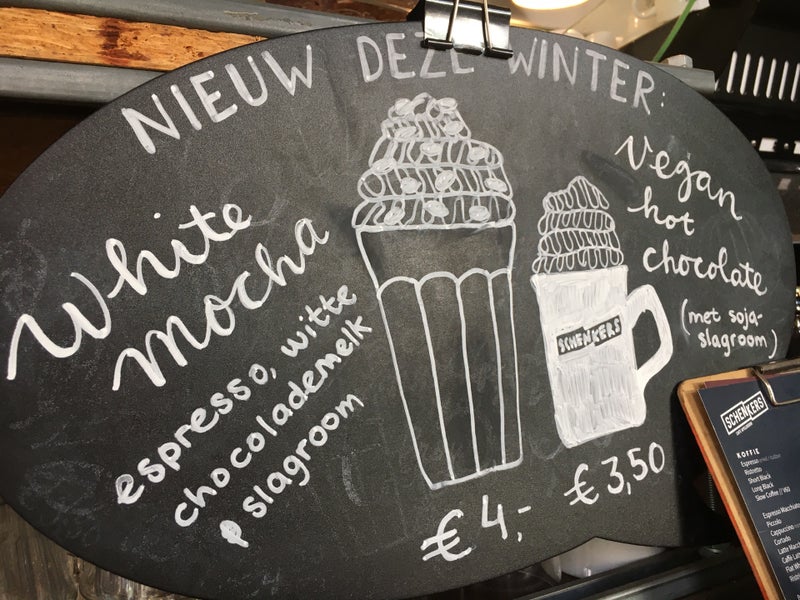 NIEUW DEZE WINTER:
White
mocha
espresso, witte
chocolademelk
& slagroom
€ 4,-
Vegan
hot
chocolate
(met soja-
slagroom)
SCHENKERS
€ 3,50
SCHENKERS
KOFFIE
Espresso
Ristretto
Short Black
Long Black
Slow Coffee // V60
Espresso Macchiato
Piccolo
Cappuccino
Cortado
Latte Macc
Caffè Lat
Flat Wh